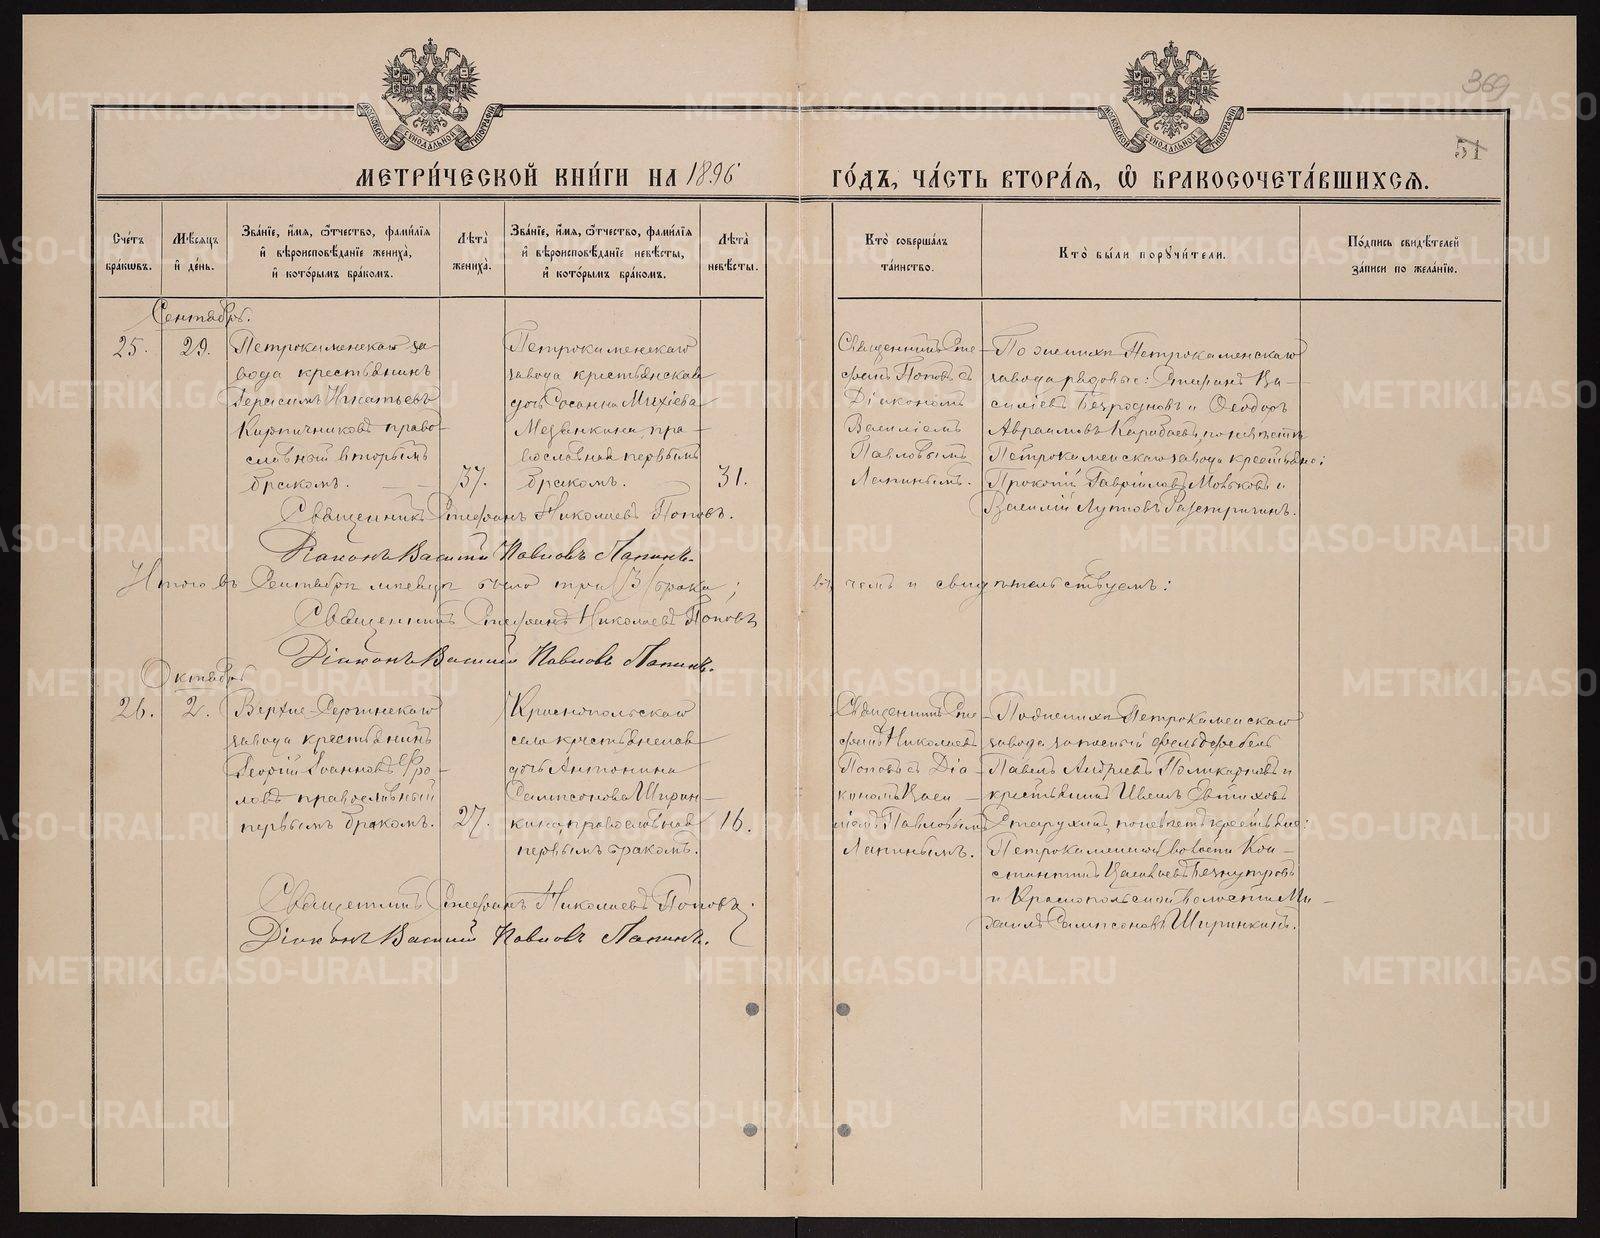 369
51
МОСКОВСКОЙ СѴНОДАЛЬНОЙ ТИПОГРАФІИ
МОСКОВСКОЙ СѴНОДАЛЬНОЙ ТИПОГРАФІИ
МЕТРИ́ЧЕСКОЙ КНИ́ГИ НА 1896 ГО́ДЪ, ЧА́СТЬ ВТОРА́Я, Ѡ БРАКОСОЧЕТА́ВШИХСЯ.
Сче́тъ бра́кѡвъ.
Мѣ́сяцъ и́ де́нь.
Зва́нїе, и́мя, ѻ́тчество, фами́лїя и́ вѣроисповѣ́данїе жениха̀, и́ кото́рымъ бра́комъ.
Лѣта̀ жениха̀.
Зва́нїе, и́мя, ѻ́тчество, фами́лїя и́ вѣроисповѣ́данїе невѣ́сты, и́ кото́рымъ бра́комъ.
Лѣта̀ невѣ́сты.
Кто̀ соверша́лъ та́инство.
Кто̀ бы́ли порꙋчи́тели.
По́дпись свидѣ́телей за́писи по жела́нїю.
Сентябрь.
25.
29.
Петрокаменскаго за-
вода крестьянинъ
Герасимъ Игнатьевъ
Кирпичниковъ право-
славный вторымъ
бракомъ.
37.
Петрокаменскаго
завода крестьянская
дочь Сосанна Михіева
Мезянкина, пра-
вославная первымъ
бракомъ.
31.
Священникъ Сте-
фанъ Поповъ съ
Діакономъ
Василіемъ
Павловымъ
Лапинымъ.
По женихѣ Петрокаменскаго
завода рядовые: Стефанъ Ва-
силіевъ Безродновъ и Ѳеодоръ
Авраамовъ Карабаевъ, по невѣстѣ
Петрокаменскаго завода крестьяне:
Прокопій Гавріиловъ Мовьковъ и
Василій Лупповъ Разстригинъ.
Священникъ Стефанъ Николаевъ Поповъ.
Діаконъ Василій Павловъ Лапинъ.
Итого въ Сентябрѣ мѣсяцѣ было три /3/ брака; въ чемъ и свидѣтельствуемъ:
Священникъ Стефанъ Николаевъ Поповъ
Діаконъ Василій Павловъ Лапинъ.
Октябрь
26.
2.
Верхне-Сергинскаго
завода крестьянинъ
Георгій Іоанновъ Фро-
ловъ православный
первымъ бракомъ.
27.
Краснопольскаго
села крестьянская
дочь Антонина
Сампсонова Ширин-
кина, православная
первымъ бракомъ.
16.
Священникъ Сте-
фанъ Николаевъ
Поповъ съ Діа-
кономъ Васи-
ліемъ Павловымъ
Лапинымъ.
По женихѣ Петрокаменскаго
завода запасный фельдфебель
Павелъ Андреевъ Поликарповъ и
крестьянинъ Евтиховъ
Старухинъ, по невѣстѣ крестьяне:
Петрокаменской волости Кон-
стантинъ
и Краснопольской волости Ми-
хаилъ Сампсоновъ Ширинкинъ.
Священникъ Стефанъ Николаевъ Поповъ.
Діаконъ Василій Павловъ Лапинъ.
METRIKI.GASO-URAL.RU